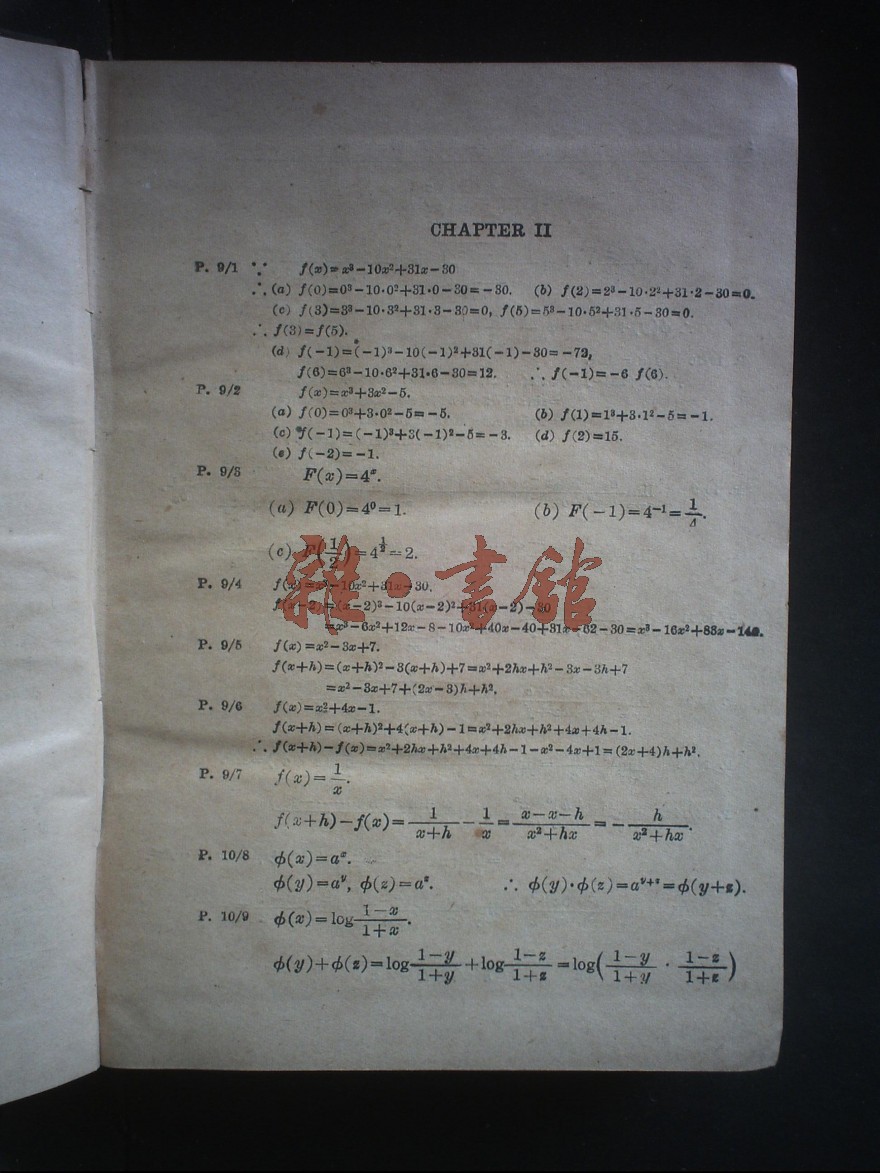 CHAPTER II
P. 9/1 ∵ f(x)=x³−10x²+31x−30
∴ (a) f(0)=0³−10·0²+31·0−30=−30. (b) f(2)=2³−10·2²+31·2−30=0.
(c) f(3)=3³−10·3²+31·3−30=0, f(5)=5³−10·5²+31·5−30=0.
∴ f(3)=f(5).
(d) f(−1)=(−1)³−10(−1)²+31(−1)−30=−72,
f(6)=6³−10·6²+31·6−30=12. ∴ f(−1)=−6 f(6).
P. 9/2 f(x)=x³+3x²−5.
(a) f(0)=0³+3·0²−5=−5. (b) f(1)=1³+3·1²−5=−1.
(c) f(−1)=(−1)³+3(−1)²−5=−3. (d) f(2)=15.
(e) f(−2)=−1.
P. 9/3 F(x)=4ˣ.
(a) F(0)=4⁰=1. (b) F(−1)=4⁻¹=1/4.
(c) F(1/2)=4^(1/2)=2.
雜·書館
P. 9/4 f(x)=x³−10x²+31x−30.
f(x−2)=(x−2)³−10(x−2)²+31(x−2)−30
=x³−6x²+12x−8−10x²+40x−40+31x−62−30=x³−16x²+83x−140.
P. 9/5 f(x)=x²−3x+7.
f(x+h)=(x+h)²−3(x+h)+7=x²+2hx+h²−3x−3h+7
=x²−3x+7+(2x−3)h+h².
P. 9/6 f(x)=x²+4x−1.
f(x+h)=(x+h)²+4(x+h)−1=x²+2hx+h²+4x+4h−1.
∴ f(x+h)−f(x)=x²+2hx+h²+4x+4h−1−x²−4x+1=(2x+4)h+h².
P. 9/7 f(x)=1/x.
f(x+h)−f(x)=1/(x+h)−1/x=(x−x−h)/(x²+hx)=−h/(x²+hx).
P. 10/8 ϕ(x)=aˣ.
ϕ(y)=a^y, ϕ(z)=a^z. ∴ ϕ(y)·ϕ(z)=a^(y+z)=ϕ(y+z).
P. 10/9 ϕ(x)=log (1−x)/(1+x).
ϕ(y)+ϕ(z)=log (1−y)/(1+y) +log (1−z)/(1+z) =log((1−y)/(1+y) · (1−z)/(1+z))